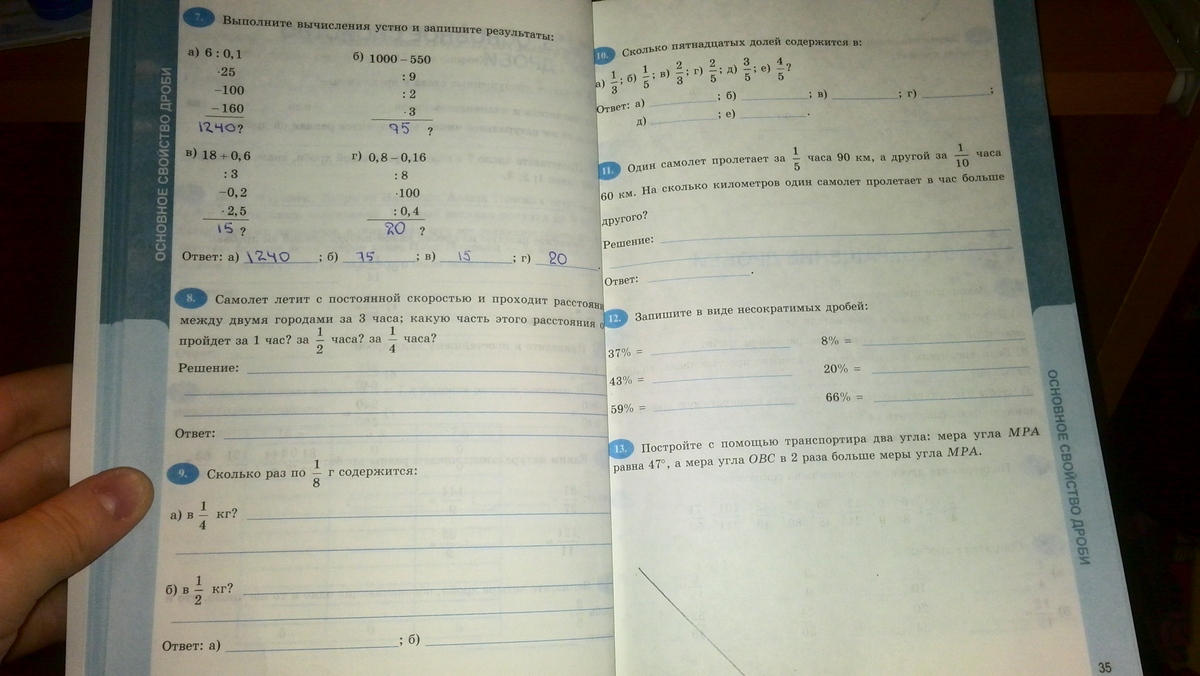 ОСНОВНОЕ СВОЙСТВО ДРОБИ
7. Выполните вычисления устно и запишите результаты:
а) 6 : 0,1
·25
−100
−160
1240?
б) 1000 − 550
: 9
: 2
· 3
75 ?
в) 18 + 0,6
: 3
−0,2
· 2,5
15 ?
г) 0,8 − 0,16
: 8
·100
: 0,4
20 ?
Ответ: а) 1240 ; б) 75 ; в) 15 ; г) 20 .
8. Самолет летит с постоянной скоростью и проходит расстояни
между двумя городами за 3 часа; какую часть этого расстояния о
пройдет за 1 час? за 1/2 часа? за 1/4 часа?
Решение:
Ответ:
9. Сколько раз по 1/8 г содержится:
а) в 1/4 кг?
б) в 1/2 кг?
Ответ: а) ; б)
10. Сколько пятнадцатых долей содержится в:
а) 1/3; б) 1/5; в) 2/3; г) 2/5; д) 3/5; е) 4/5?
Ответ: а) ; б) ; в) ; г) ;
д) ; е) .
11. Один самолет пролетает за 1/5 часа 90 км, а другой за 1/10 часа
60 км. На сколько километров один самолет пролетает в час больше
другого?
Решение:
Ответ: .
12. Запишите в виде несократимых дробей:
37% =
8% =
43% =
20% =
59% =
66% =
13. Постройте с помощью транспортира два угла: мера угла MPA
равна 47°, а мера угла OBC в 2 раза больше меры угла MPA.
ОСНОВНОЕ СВОЙСТВО ДРОБИ
35